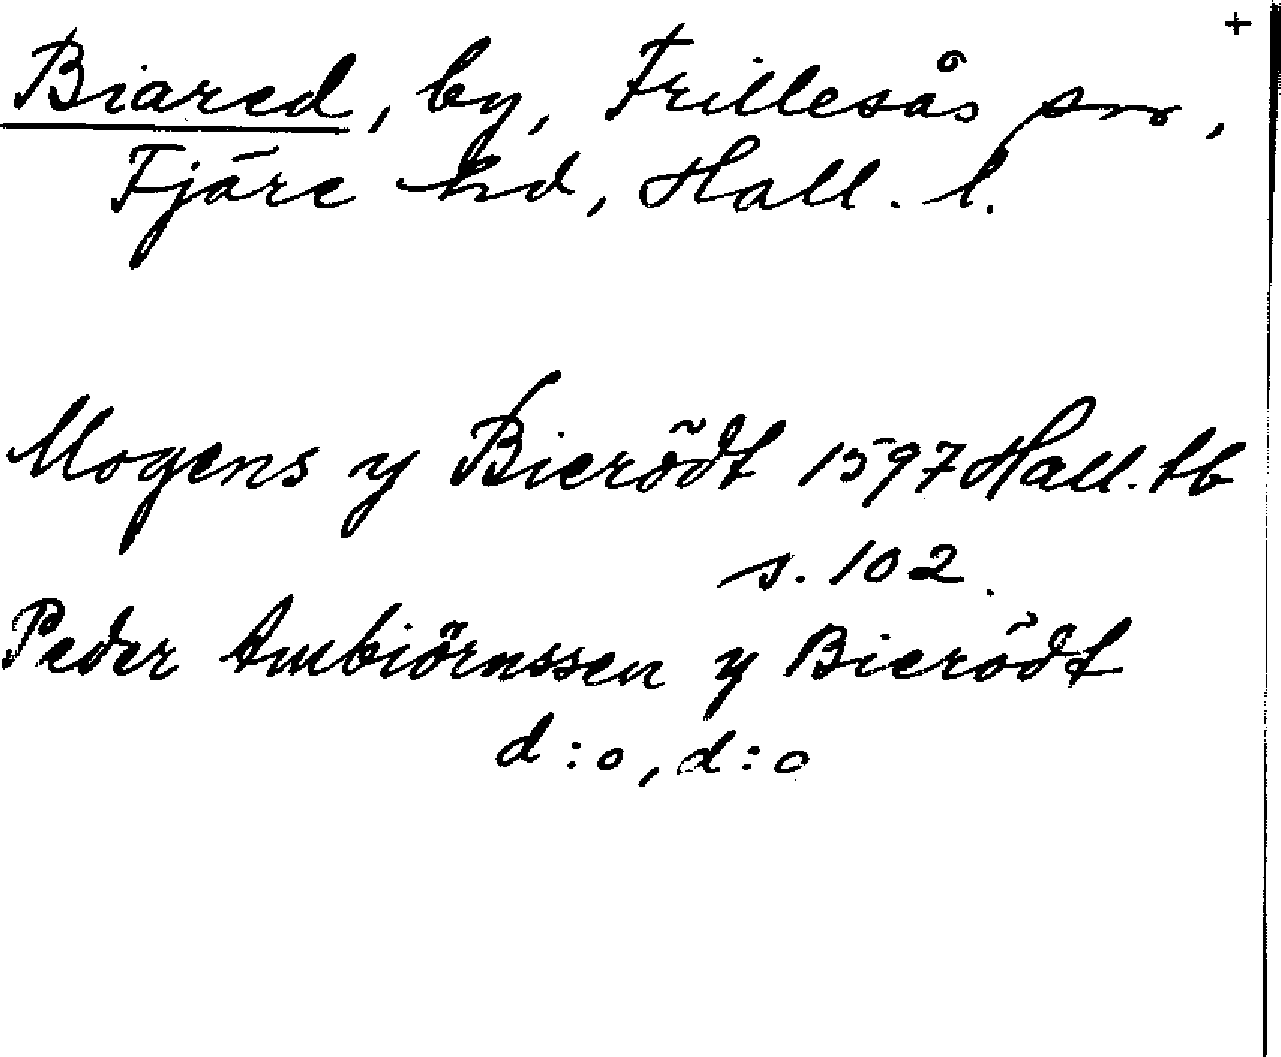 +
Biared, by, Frillesås sn,
Fjäre hd, Hall. l.
Mogens y Bierödt 1597 Hall. tb
s. 102.
Peder Ambiörnssen y Bierödt
d:o, d:o